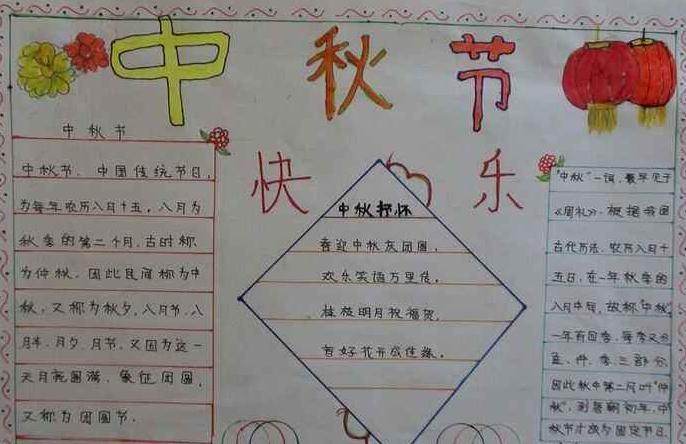 中秋节
快乐
中秋节
中秋节、中国传统节日，
为每年农历八月十五，八月为
秋季的第二个月，古时称
为仲秋，因此民间称为中
秋，又称为秋夕，八月节，八
月半，月夕，月节，又因为这一
天月亮圆满，象征团圆，
又称为团圆节。
中秋抒怀
喜迎中秋友团圆，
欢乐笑语万里传。
桂枝明月祝福贺，
暂好花开成佳缘。
"中秋"一词，最早见于
《周礼》。根据我国
古代历法，农历八月十
五日，在一年秋季的
八月中旬，故称"中秋"
一年有四季，每季又分
孟、仲、季三部分
因此秋中第二月叫"仲
秋"，到唐朝初年，中
秋节才成为固定节日